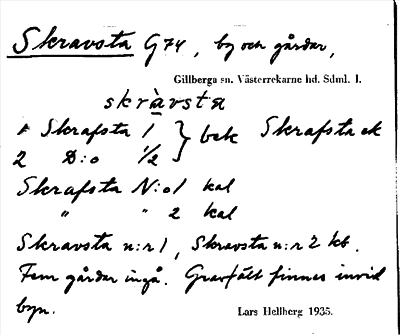 Skravsta G74, by och gårdar,
Gillberga sn. Västerrekarne hd. Sdml. l.
skràvsta
1 Skrafsta 1 } bek Skrafsta ek
2 D:o 1/2
Skrafsta N:o1 kal
" " 2 kal
Skravsta n:r 1, Skravsta n:r 2 kb.
Fem gårdar ingå. Gravfält finnes invid
byn.
Lars Hellberg 1935.